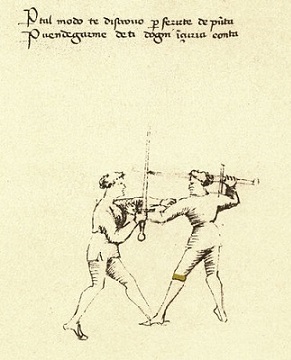 P tal modo te discrovo p ferirte de pũta
P uendegarme de ti dogn' iȷuria conta